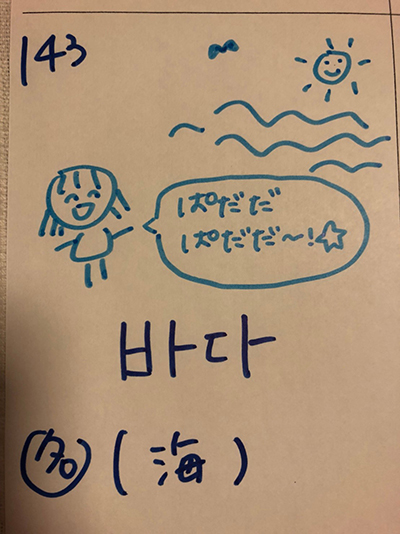 143
ぱだだ
ぱだだ〜!☆
바다
名(海)